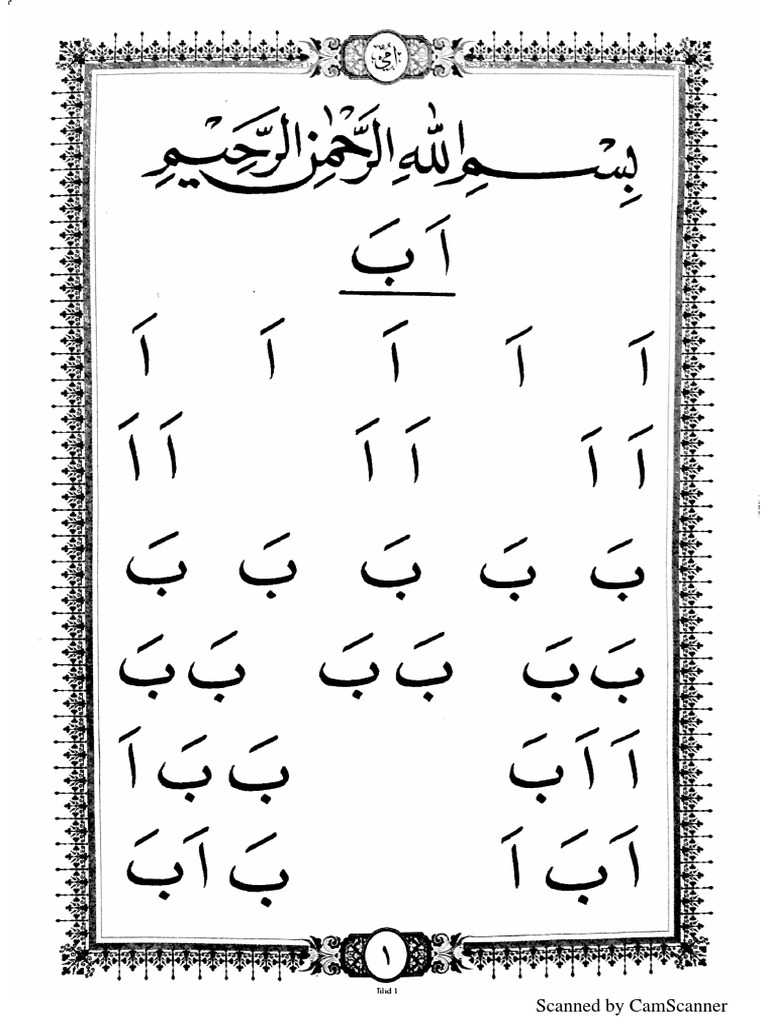 أمي
بِسْمِ اللهِ الرَّحْمٰنِ الرَّحِيْمِ
اَ بَ
اَ اَ اَ اَ اَ
اَ اَ اَ اَ اَ اَ
بَ بَ بَ بَ بَ
بَ بَ بَ بَ بَ بَ
اَ اَ بَ بَ بَ اَ
اَ بَ اَ بَ اَ بَ
١
Jilid 1
Scanned by CamScanner